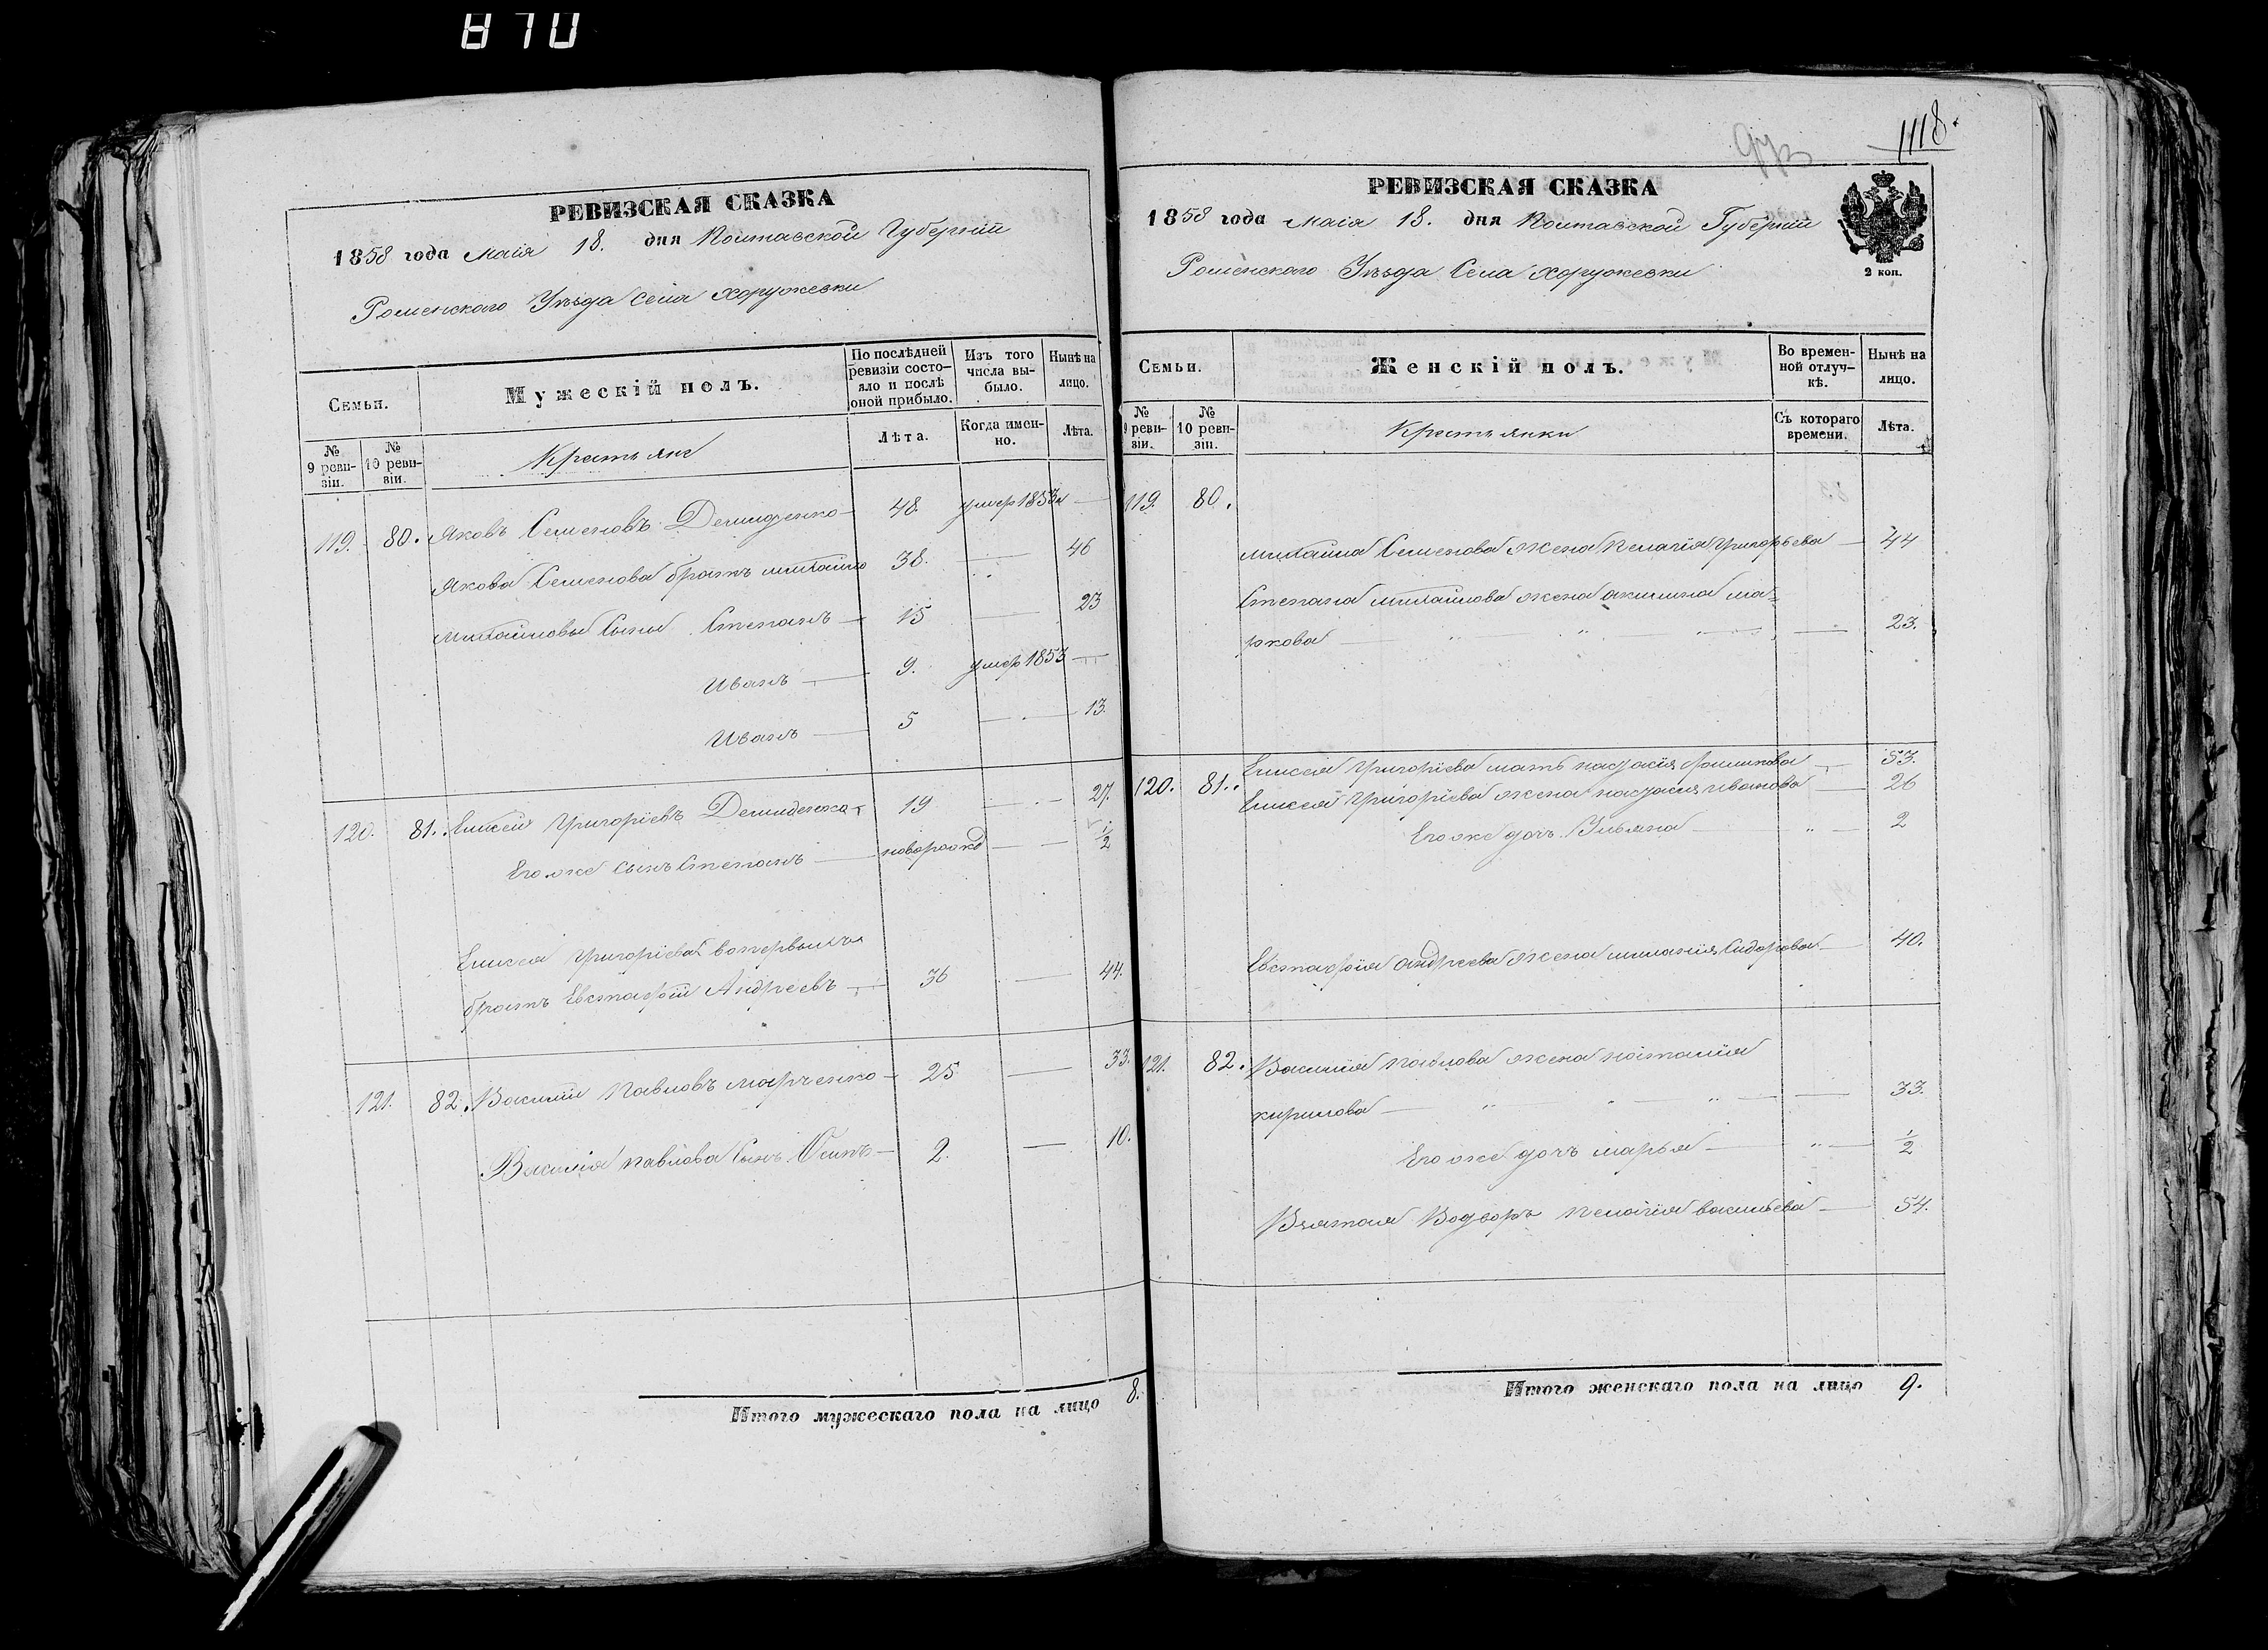 870
РЕВИЗСКАЯ СКАЗКА
1858 года Маія 18. дня Полтавской Губерніи
Роменского Уѣзда Села Хоружевки
Семьи.
Мужескій полъ.
По послѣдней ревизіи состояло и послѣ оной прибыло.
Изъ того числа выбыло.
Нынѣ на лицо.
№ 9 ревизіи.
№ 10 ревизіи.
Крестьяне
Лѣта.
Когда именно.
Лѣта.
119. 80. Яковъ Семеновъ Демиденко 48. умер 1853
Якова Семенова братъ Михайло 38. — 46
Михайловы Сыны Степанъ — 15 — 23
Иванъ — 9. умер 1853 —
Иванъ — 5 — 13.
120. 81. Елисей Григоріевъ Демиденко 19 — 27.
Его же сынъ Степанъ — новорожд — 1/2
Елисея Григоріева вопервыхъ
братъ Евстафій Андреевъ — 36 — 44.
121. 82. Василий Павловъ Марченко — 25 — 33.
Василія Павлова Сынъ Осипъ — 2. — 10.
Итого мужескаго пола на лицо 8.
1118.
РЕВИЗСКАЯ СКАЗКА
1858 года Маія 18. дня Полтавской Губерніи
Роменского Уѣзда Села Хоружевки
2 коп.
Семьи.
Женскій полъ.
Во временной отлучкѣ.
Нынѣ на лицо.
№ 9 ревизіи.
№ 10 ревизіи.
Крестьянки
Съ котораго времени.
Лѣта.
119. 80.
Михайла Семенова жена Пелагія Григорьева — 44
Степана Михайлова жена Акилина Ма-
ркова — " " " — 23.
120. 81. Елисея Григоріева мать Настасія — 53.
Елисея Григоріева жена Настасія Иванова — 26
Его же дочъ — " — 2
Евстафія Андреева жена Миланія Сидорова — 40.
121. 82. Василія Павлова жена Наталія
Кирилова — " " " — 33.
Его же дочъ Марья — " — 1/2
Взятая Водворъ Пелагія Васильева — 54.
Итого женскаго пола на лицо 9.